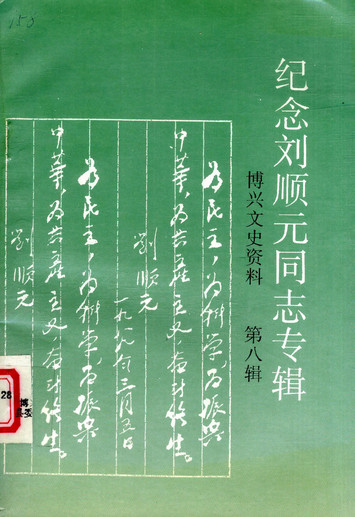 纪念刘顺元同志专辑
博兴文史资料 第八辑
为民主,为科学为振兴
中华,为共产主义,奋斗终生。
劉順元
一九八九年三月五日
为民主,为科学为振兴
中华,为共产主义,奋斗终生。
劉順元
153
28